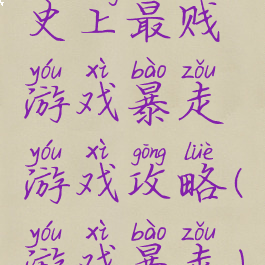 史上最贱
yóu xì bào zǒu
游戏暴走
yóu xì gōng lüè
游戏攻略(
yóu xì bào zǒu
游戏暴走)